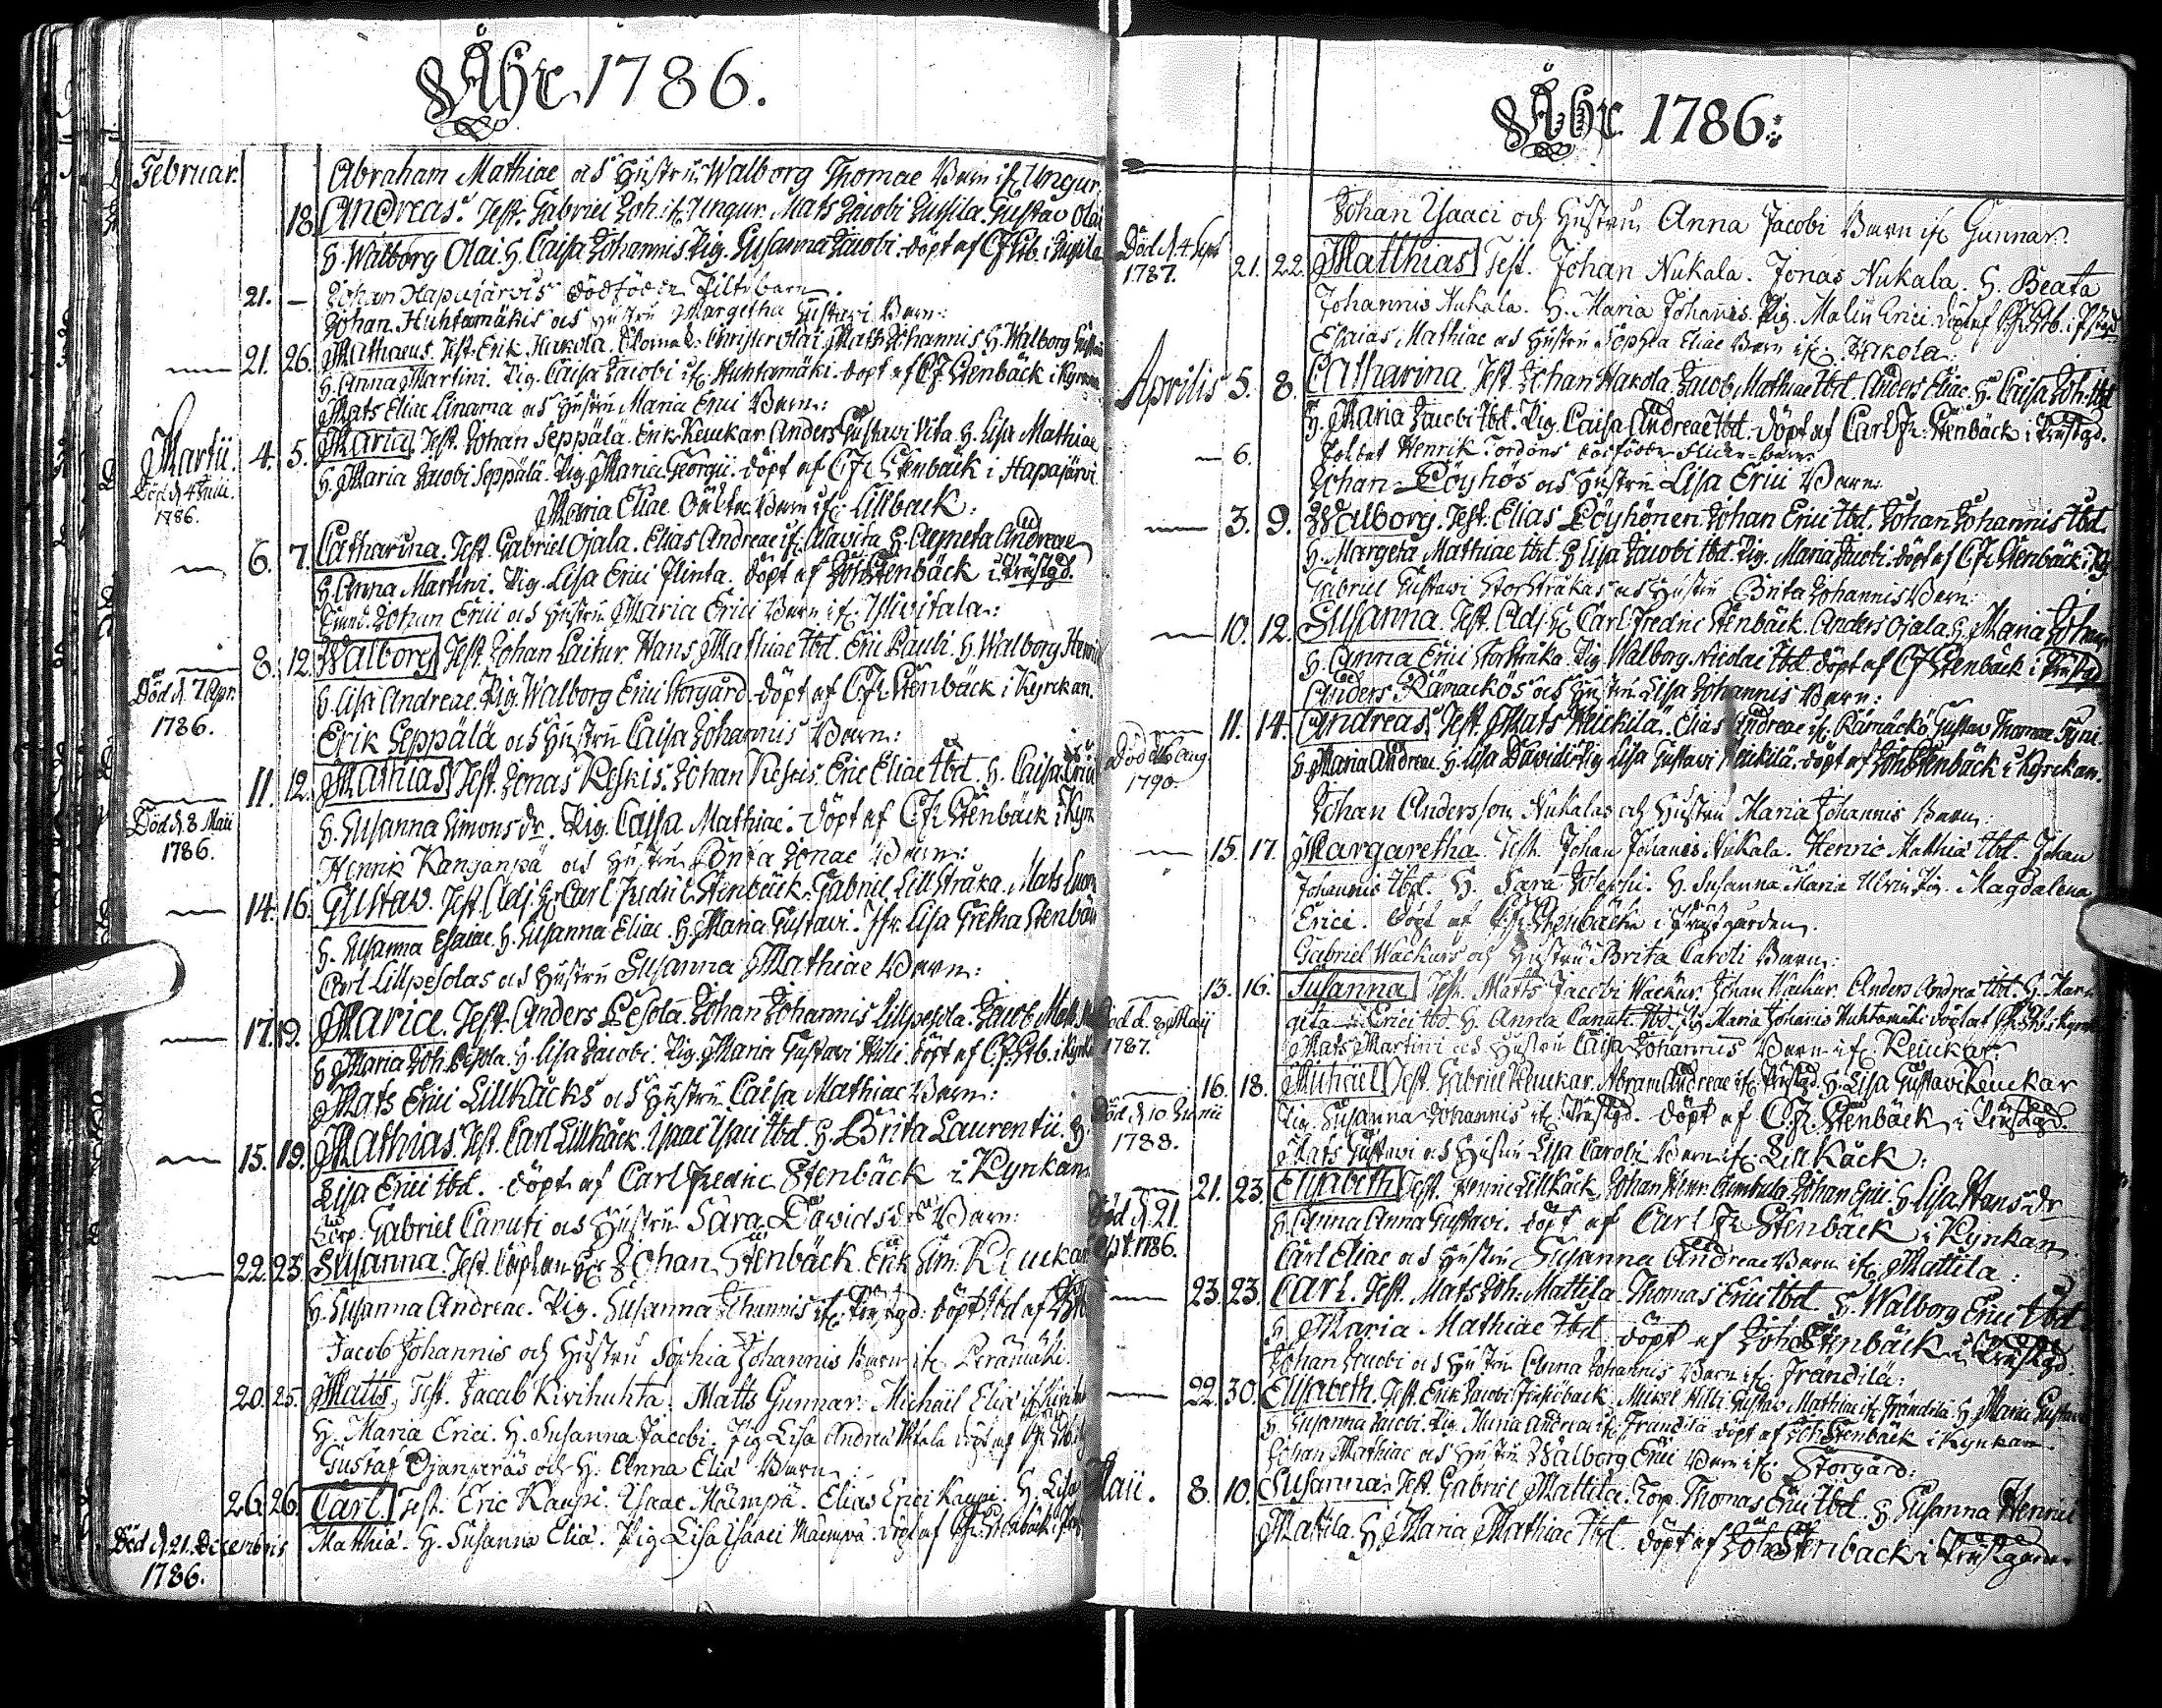 Åhr 1786.
Februar.
Abraham Mathiae och Hustru Walborg Thomae Barn if. Ungur.
18. Andreas. Test. Gabriel Joh. if. Ungur. Mats Jacobi Luhila. Gustav Olai
H. Walborg Olai. H. Caisa Johannis. Pig. Susanna Jacobi. Döpt af
21. — Johan Hapajärvis dödföder Barn.
Johan Huhtamäkis och Hustru Margetha Gustavi Barn:
21. 26. Mathaeus. Test. Erik Hakola. Christer Olai. Mats Johannis H. Walborg
H. Anna Martini. Pig. Caisa Jacobi if. Huhtamäki. döpt af CF Stenbäck i Kyrkan
Mats Eliae Linama och Hustru Maria Erici Barn:
Martii. 4. 5. Maria. Test. Johan Seppälä. Erik Keuckar. Anders Gustavi Vita. H. Lisa Mathiae
Död d. 4 Junii. 1786.
H. Maria Jacobi Seppälä. Pig. Maria Georgii. döpt af CFr Stenbäck i Hapajärvi
Maria Eliae Barn if. Lillbäck.
6. 7. Catharina. Test. Gabriel Ojala. Elias Andreae if. Alavita. H. Agneta Andreae
H. Anna Martini. Pig. Lisa Erici Flinta. döpt af Joh Stenbäck i Prästgd.
Johan Erici och Hustru Maria Erici Barn if. Ylivitala:
8. 12. Walborg Test. Johan Laitur. Hans Mathiae Ibd. Eric Pauli. H. Walborg
Död d. 7 Apr. 1786.
H. Lisa Andreae. Pig. Walborg Erici Storgård. döpt af CFr Stenbäck i Kyrckan.
Erik Seppälä och Hustru Caisa Johannis Barn:
11. 12. Mathias Test. Jonas Keskis. Johan Keskis. Eric Eliae Ibd. H. Caisa Erici
Död d. 8 Maii 1786.
H. Susanna Simonsdr. Pig. Caisa Mathiae. Döpt af CFr Stenbäck i Kyrk
Henrik Kanganpä och Hustru Brita Jonae Barn:
14. 16. Gustav. Test. Adj. Hr Carl Fredric Stenbäck. Gabriel Lillstråka. Mats
H. Susanna Esaiae. H. Susanna Eliae. H. Maria Gustavi. Jfr. Lisa Gretha Stenbäck
Carl Lillpesolas och Hustru Susanna Mathiae Barn:
17. 19. Maria. Test. Anders Pesola. Johan Johannis Lillpesola. Jacob
H. Maria Joh. Pesola. H. Lisa Jacobi. Pig. Maria Gustavi Hilli. döpt af CF. Stb. i Kyrk
Mats Erici Lillkäcks och Hustru Caisa Mathiae Barn:
15. 19. Mathias. Test. Carl Lillkäck. Isaac Isaci Ibd. H. Brita Laurentii. H.
Lisa Erici Ibd. döpt af Carl Fredric Stenbäck i Kyrkan
Corp. Gabriel Canuti och Hustru Sara Davidsdr Barn:
22. 23. Susanna. Test. Caplan Hr Johan Stenbäck. Erik Sim. Keuckar
H. Susanna Andreae. Pig. Susanna Johannis if. Prästgd. döpt Ibd af
Jacob Johannis och Hustru Sophia Johannis Barn if. Perämäki.
20. 25. Matts. Test. Jacob Kivihuhta. Matts Gunnar. Michaël Eliae
H. Maria Erici. H. Susanna Jacobi. Pig Lisa Andreae
Gustaf Ojanperäs och H. Anna Eliae Barn:
26. 26. Carl Test. Eric Kaupi. Isaac Mäenpä. Elias Erici Kaupi. H. Lisa
Död d. 21. Decembris 1786.
Matthiae. H. Susanna Eliae. Pig Lisa Isaaci Mäenpä. döpt af

Åhr 1786.
Johan Isaaci och Hustru Anna Jacobi Barn if. Gunnar.
Död d. 4 Sept. 1787.
21. 22. Matthias Test. Johan Nukala. Jonas Nukala. H. Beata
Johannis Nukala. H. Maria Johannis. Pig. Malin Erici. döpt af
Esaias Mathiae och Hustru Sophia Eliae Barn if. Hakola:
Aprilis 5. 8. Catharina. Test. Johan Hakola. Jacob Mathiae Ibd. Anders Eliae. H. Caisa Joh. Ibd
H. Maria Jacobi Ibd. Pig. Caisa Andreae Ibd. Döpt af Carl Fr. Stenbäck i Prästgd.
6. Henrik Tordöns dödföder Flicke-barn
Johan Pöyhös och Hustru Lisa Erici Barn:
3. 9. Walborg. Test. Elias Pöyhönen. Johan Erici Ibd. Johan Johannis Ibd.
H. Margeta Mathiae Ibd. H. Lisa Jacobi Ibd. Pig. Maria Jacobi. döpt af CFr Stenbäck i
Gabriel Gustavi Storstråkas och Hustru Brita Johannis Barn:
10. 12. Susanna. Test. Adj. Hr Carl Fredric Stenbäck. Anders Ojala. H. Maria
H. Anna Erici Storstråka. Pig. Walborg Nicolai Ibd. döpt af CF Stenbäck i Prästgd
Anders Rämäckös och Hustru Lisa Johannis Barn:
11. 14. Andreas. Test. Mats Heickilä. Elias Andreae if. Rämäckö. Gustav Thomae
Död d. Aug 1790.
H. Maria Andreae. H. Lisa Davidis. Pig. Lisa Gustavi Heickilä. döpt af Joh Stenbäck i Kyrckan.
Johan Andersson Nukalas och Hustru Maria Johannis Barn:
15. 17. Margaretha. Test. Johan Johannis Nukala. Henric Mathiae Ibd. Johan
Johannis Ibd. H. Sara Josephi. H. Susanna Maria Pig. Magdalena
Erici. Döpt af CFr Stenbäck i Prästgården.
Gabriel Wackurs och Hustru Brita Caroli Barn:
13. 16. Susanna Test. Matts Jacobi Wackur. Johan Wackur. Anders Andreae Ibd. H. Mar
Död d. 8 Maij 1787.
geta Erici Ibd. H. Anna Canuti Ibd. Pig. Maria Johannis Huhtamäki döpt af
Mats Martini och Hustru Caisa Johannis Barn if. Keuckar.
16. 18. Michaël Test. Gabriel Keuckar. Abram Andreae if. Prästgd. H. Lisa Gustavi Keuckar
Död d. 10 Junii 1788.
Pig. Susanna Johannis if. Prästgd. döpt af C.Fr. Stenbäck i Prästgd.
Mats Gustavi och Hustru Lisa Caroli Barn if. Lillkäck:
21. 23. Elisabeth Test. Henric Lillkäck. Johan Johan Erici H. Lisa Hansdr
Död d. 21. Sept. 1786.
H. Anna Gustavi. döpt af Carl Fr Stenbäck i Kyrkan
Carl Eliae och Hustru Susanna Andreae Barn if. Mattila:
23. 23. Carl. Test. Mats Joh. Mattila. Thomas Erici Ibd. H. Walborg Erici Ibd
H. Maria Mathiae Ibd. döpt af Joh Stenbäck i Prästgd.
Johan Jacobi och Hustru Anna Johannis Barn if. Frändilä:
22. 30. Elisabeth. Test. Erik Jacobi Mikel Hilli. Gustav Mathiae if. Frändilä. H. Maria Gustavi
H. Susanna Jacobi. Pig. Maria Andreae if. Frändilä. döpt af Joh Stenbäck i Kyrkan.
Johan Mathiae och Hustru Walborg Erici Barn if. Storgård:
Maii. 8. 10. Susanna. Test. Gabriel Mattila. Corp. Thomas Erici Ibd. H. Susanna Henrici
Mattila. H. Maria Mathiae Ibd. döpt af Joh Stenbäck i Prästgården